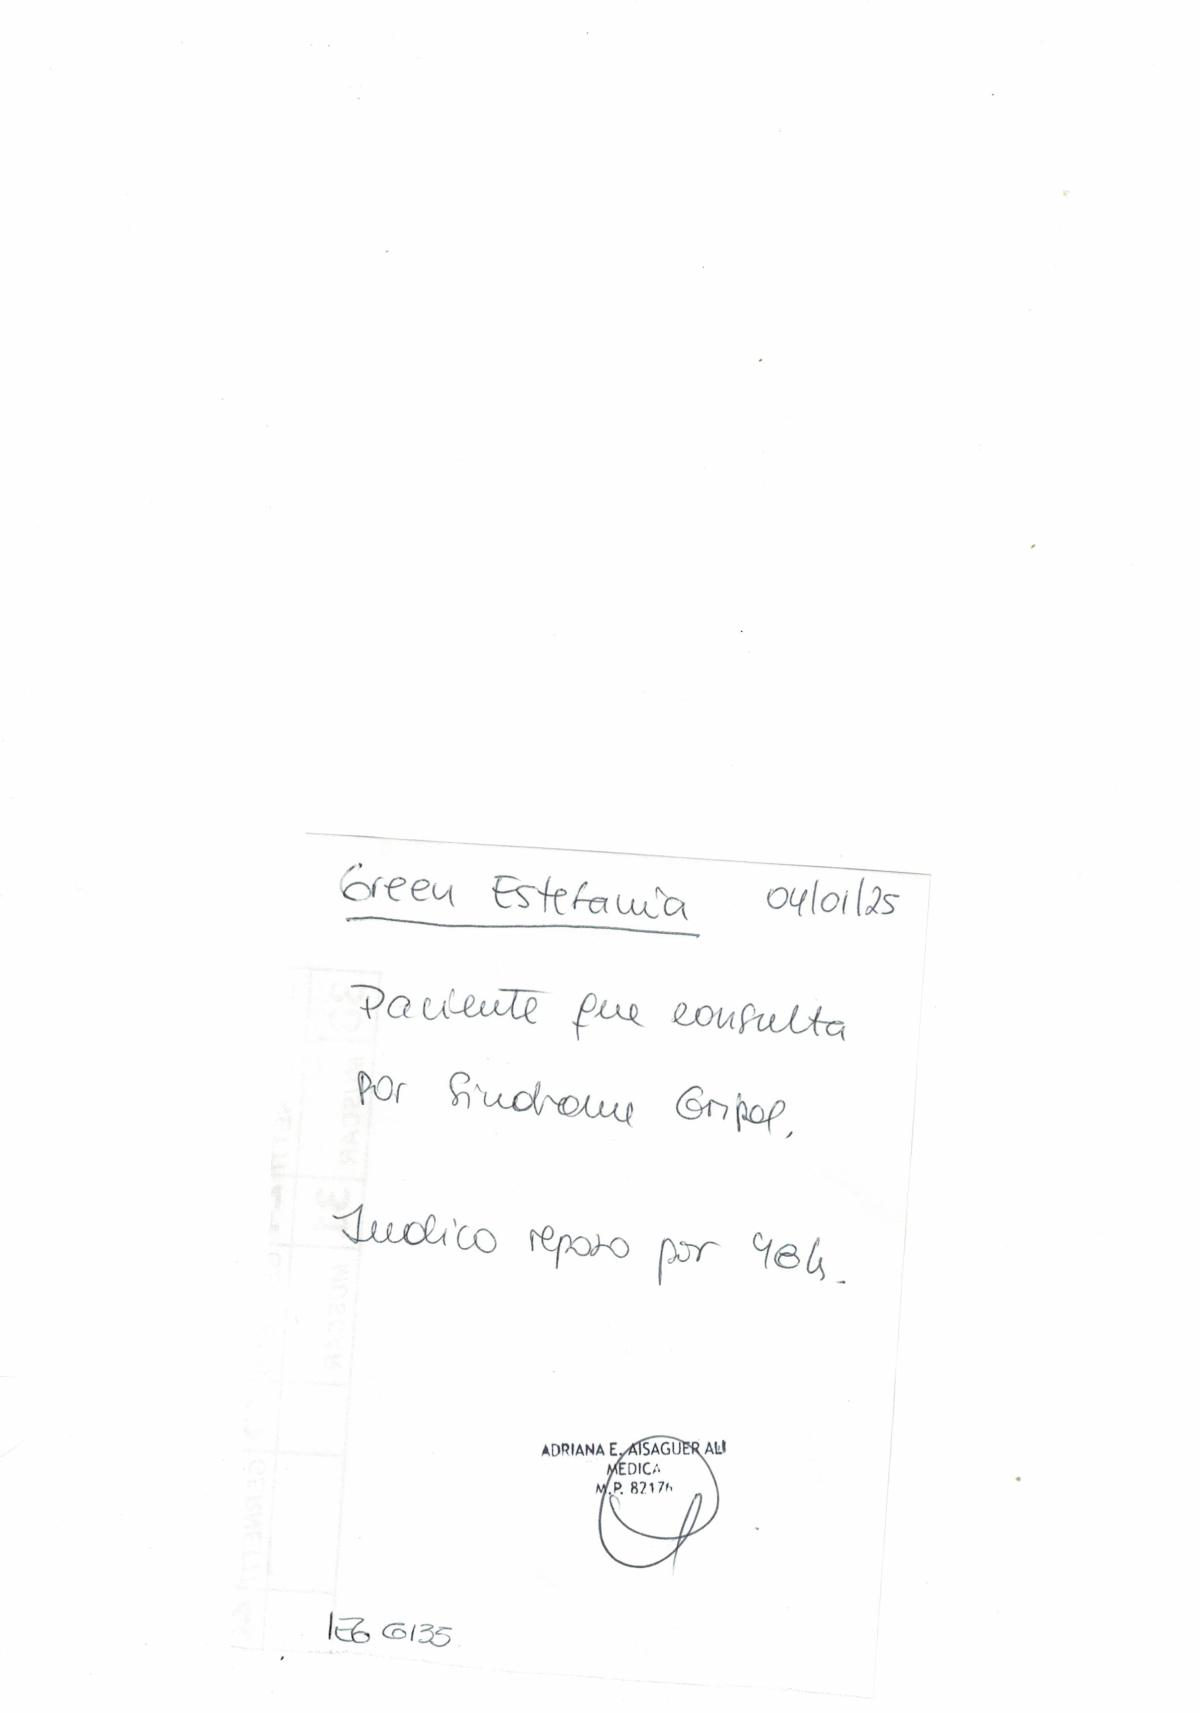 Green Estefania 04/01/25
Paciente que consulta
por Sindrome Gripal.
Indico reposo por 48h.
ADRIANA E. AISAGUER ALI
MEDICA
M.P. 82176
G135